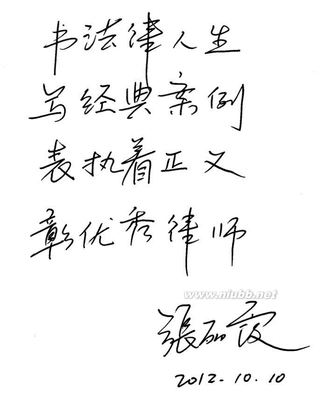 书法律人生
写经典案例
表执着正义
彰优秀律师
www.niubb.net
張丽霞
2012.10.10